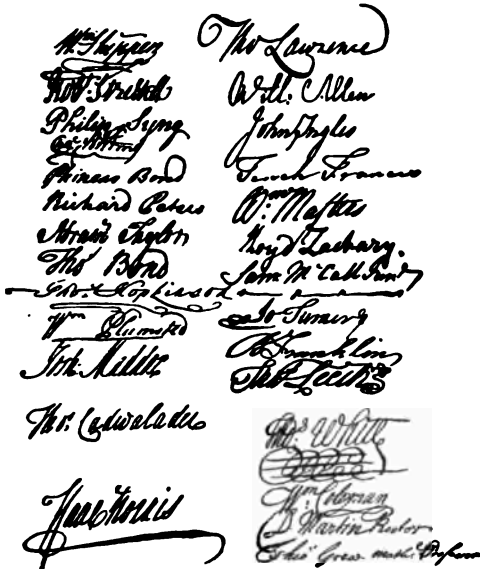 Wm Shippen
Robt Strettell
Philip Syng
Phineas Bond
Richard Peters
Abram Taylor
Tho Bond
Thos. Hopkinson
Wm Plumsted
Jos. Maddox
Thos. Cadwalader
Isaac Norris
Tho Lawrence
Will: Allen
John Inglis
Tench Francis
Wm Masters
Lloyd Zachary.
Sam McCall Junr
Jos Turner
B Franklin
Jas. Leech
Thos White
Wm Coleman
D Martin Rector
Theos Grew mathl Professor